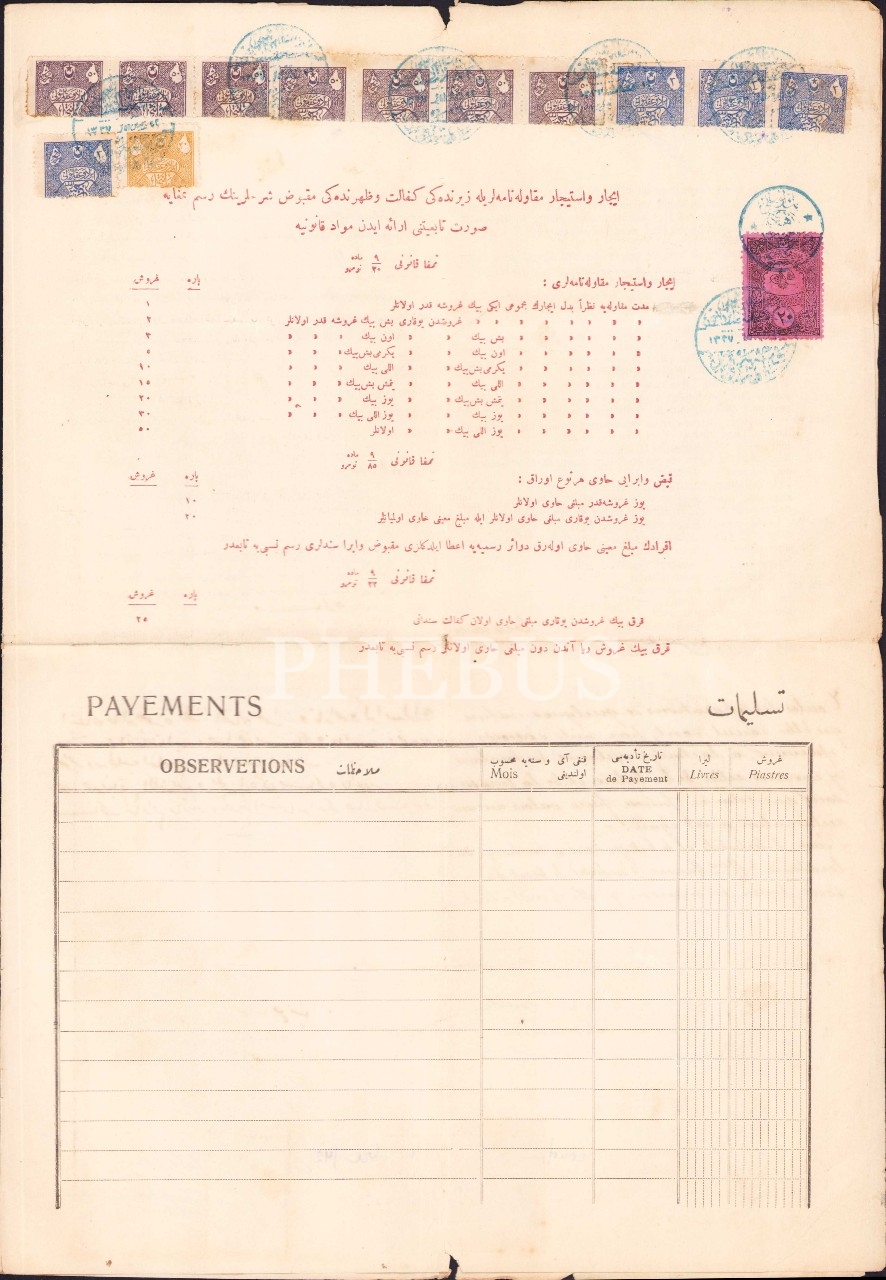 ایجار واستیجار مقاوله‌نامه‌لریله زیرنده‌کی کفالت وظهرنده‌کی مقبوض شرحلرینك رسم تمغایه
صورت تابعیتنی ارائه ایدن مواد قانونیه
تمغا قانونی ماده ٩ نومرو ٣٠
ایجار واستیجار مقاوله‌نامه‌لری : پاره غروش
مدت مقاوله‌یه نظراً بدل ایجارك مجموعی ایکی بیك غروشه قدر اولانلر ١
» » » » » » » غروشدن یوقاری بش بیك غروشه قدر اولانلر ٢
» » » » » » » بش بیك » » اون بیك » » » ٣
» » » » » » » اون بیك » » یکرمی بش بیك » » » ٥
» » » » » » » یکرمی بش بیك » » اللی بیك » » » ١٠
» » » » » » » اللی بیك » » یتمش بش بیك » » » ١٥
» » » » » » » یتمش بش بیك » » یوز بیك » » » ٢٠
» » » » » » » یوز بیك » » یوز اللی بیك » » » ٣٠
» » » » » » » یوز اللی بیك » » اولانلر ٥٠
تمغا قانونی ماده ٩ نومرو ٨٥
قبض وابرایی حاوی هرنوع اوراق : پاره غروش
یوز غروشه‌قدر مبلغی حاوی اولانلر ١٠
یوز غروشدن یوقاری مبلغی حاوی اولانلر ایله مبلغ معینی حاوی اولمیانلر ٢٠
افرادك مبلغ معینی حاوی اوله‌رق دوائر رسمیه‌یه اعطا ایلدکلری مقبوض وابرا سندلری رسم نسبی‌یه تابعدر
تمغا قانونی ماده ٩ نومرو ٢٢
پاره غروش
قرق بیك غروشدن یوقاری مبلغی حاوی اولان کفالت سنداتی ٢٥
قرق بیك غروش ویا آندن دون مبلغی حاوی اولانلر رسم نسبی‌یه تابعدر
PHEBUS
PAYEMENTS تسلیمات
OBSERVETIONS ملاحظات
قنغی آی و سنه‌یه محسوب اولندیغی
Mois
تاریخ تأدیه‌سی
DATE
de Payement
لیرا
Livres
غروش
Piastres